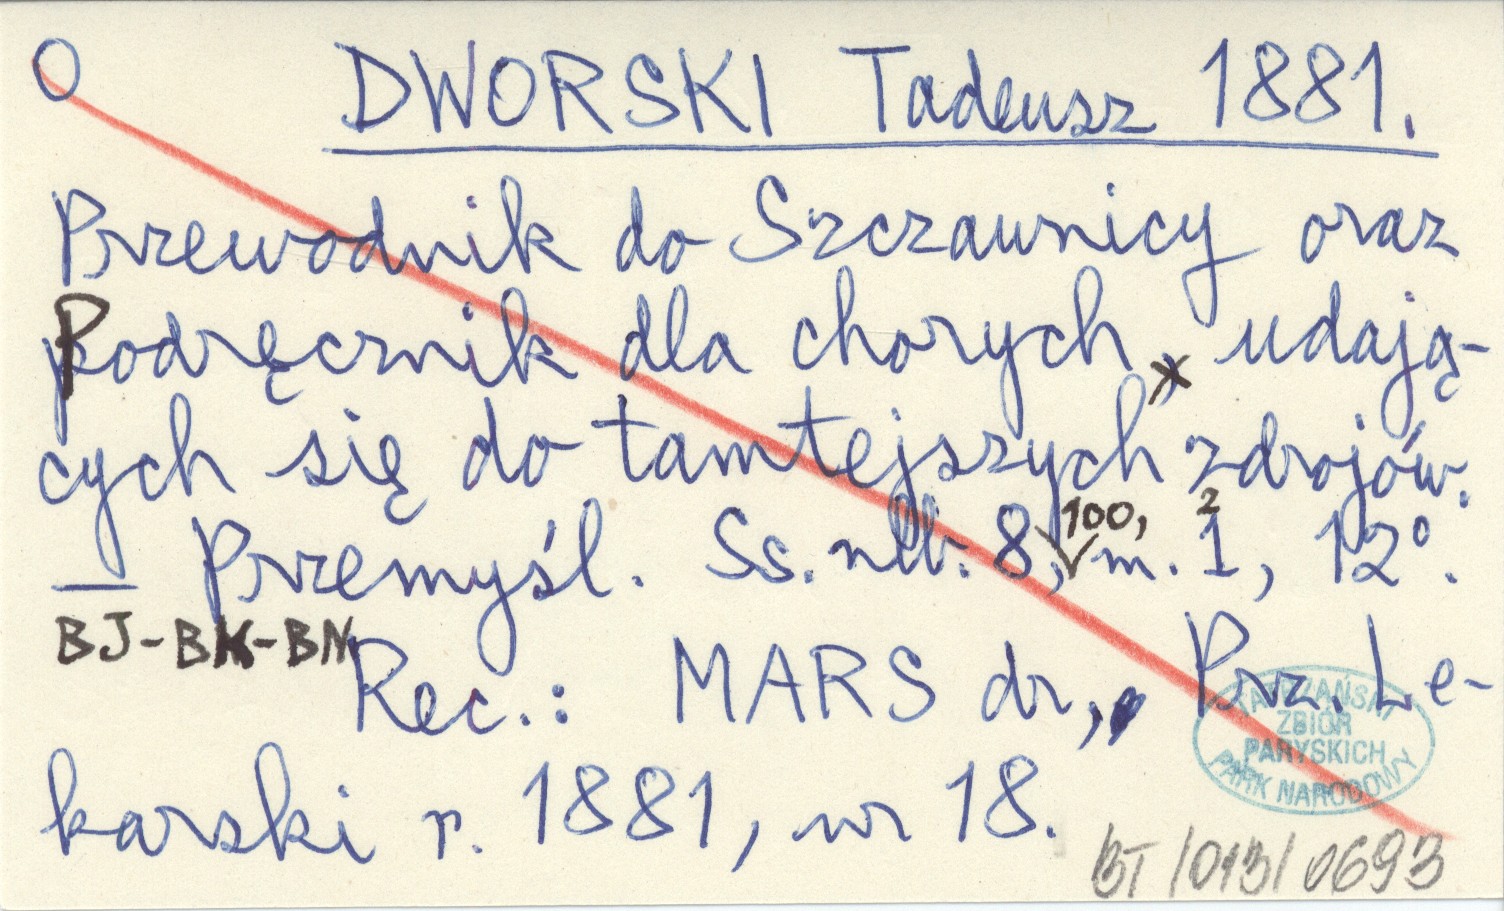 O DWORSKI Tadeusz 1881.
Przewodnik do Szczawnicy oraz
Podręcznik dla chorych x udają-
cych się do tamtejszych zdrojów.
— Przemyśl. Ss. nlb. 8, 100, m. 1, 2 12°.
BJ-BK-BN
Rec.: MARS dr, Prz. Le-
karski r. 1881, nr 18.
TATRZAŃSKI
ZBIÓR
PARYSKICH
PARK NARODOWY
BT/013/0693